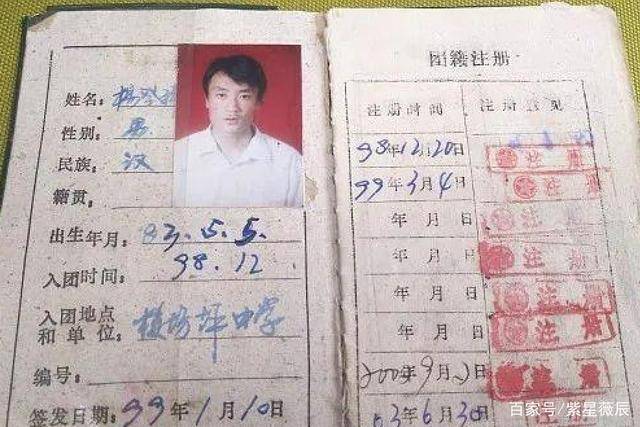 姓名：杨
性别：男
民族：汉
籍贯：
出生年月：83.5.5.
入团时间：98.12
入团地点
和单位：坪中学
编号：
签发日期：99年1月10日
团籍注册
注册时间 注册意见
98年12月20日 注册
99年3月4日 注册
年 月 日 注册
年 月 日 注册
年 月 日 注册
年 月 日 注册
9月2日 注册
03年6月30日 注册
百家号/紫星薇辰